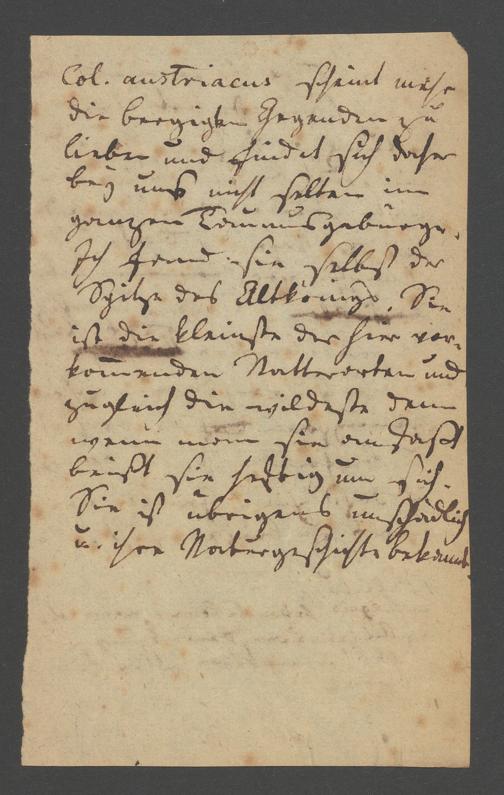 Col. austriacus scheint mehr
die bergigten Gegenden zu
lieben und findet sich daher
bey uns nicht selten im
ganzen Taunusgebürge.
Ich fand sie selbst der
Spitze des Altkönigs. Sie
ist die kleinste der hier vor-
kommenden Natterarten und
zugleich die wildeste denn
wenn man sie anfaßt
beißt sie heftig um sich.
Sie ist übrigens unschädlich
u. ihre Naturgeschichte bekannt.